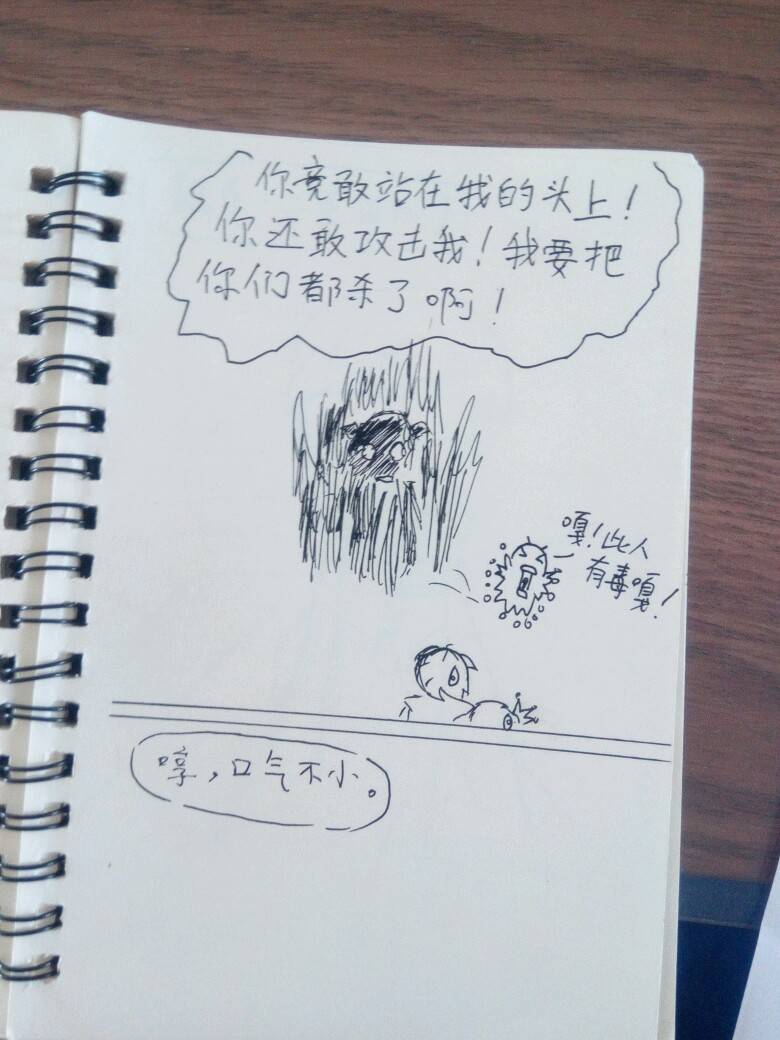 你竟敢站在我的头上！
你还敢攻击我！我要把
你们都杀了啊！
嘎！此人
有毒嘎！
哼，口气不小。